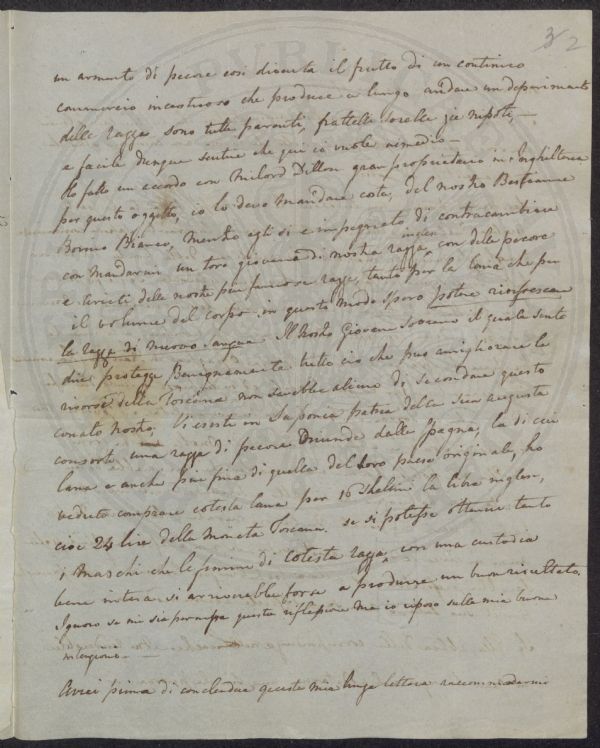 3 2
un armento di pecore così diventa il frutto di un continuo
commercio incestuoso che produce a lungo andare un deperimento
delle razze sono tutte parenti, fratelli sorelle zie nipoti,—
e facile dunque sentire che qui ci vuole rimedio—
Ho fatto un accordo con Milord Dillon gran proprietario in Inghilterra
per questo oggetto, io lo devo mandare costà, del nostro Bestiame
Bovino Bianco, mentre egli si è impegnato di contracambiare
con mandarmi un toro giovane di nostra razza, con delle pecore
e arieti delle nostre più famose razze, tanto per la lana che per
il volume del corpo. in questo modo spero poter rinfrescare
la razza di nuovo sangue Il nostro Giovane Sovrano il quale sento
dire protegge Benignamente tutto ciò che può migliorare le
risorse della Toscana non sarebbe alieno di secondare questo
conato nostro. Vi esiste in Sassonia patria della sua augusta
consorte una razza di pecore dalla Spagna, la di cui
lana e anche più fina di quella del loro paese originale, ho
veduto comprare cotesta lana per 16 Shelini la libra inglese,
cioè 24 lire della Moneta Toscana. se si potesse ottenere tanto
i maschi che le femine di cotesta razza, con una custodia
bene intesa si arriverebbe forse a produrre un buon risultato.
Ignoro se mi sia permessa questa riflessione ma io riposo sulla mia buona
intenzione.
Avrei prima di concludere questa mia lunga lettera raccommandarmi